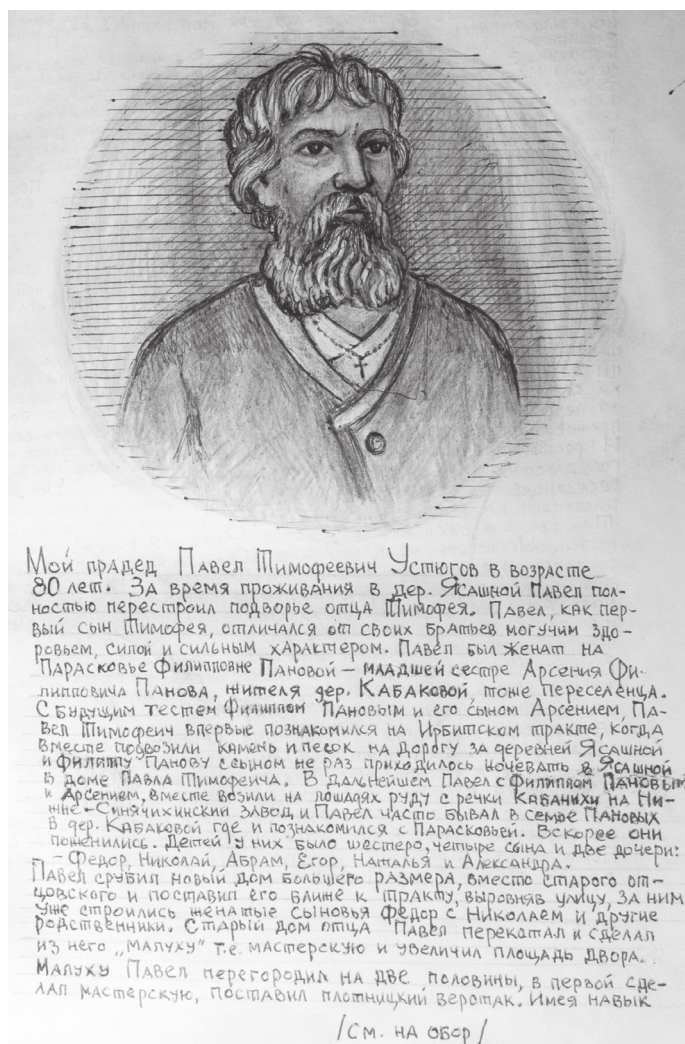 Мой прадед Павел Тимофеевич Устюгов в возрасте
80 лет. За время проживания в дер. Ясашной Павел пол-
ностью перестроил подворье отца Тимофея. Павел, как пер-
вый сын Тимофея, отличался от своих братьев могучим здо-
ровьем, силой и сильным характером. Павел был женат на
Парасковье Филипповне Пановой – младшей сестре Арсения Фи-
липповича Панова, жителя дер. Кабаковой, тоже переселенца.
С будущим тестем Филиппом Пановым и его сыном Арсением, Па-
вел Тимофеич впервые познакомился на Ирбитском тракте, когда
вместе подвозили камень и песок на дорогу за деревней Ясашной
и Филяту Панову с сыном не раз приходилось ночевать в Ясашной
в доме Павла Тимофеича. В дальнейшем Павел с Филиппом Пановым
и Арсением, вместе возили на лошадях руду с речки Кабанихи на Ни-
жне-Синячихинский завод и Павел часто бывал в семье Пановых
в дер. Кабаковой где и познакомился с Парасковьей. Вскорее они
поженились. Детей у них было шестеро, четыре сына и две дочери:
– Федор, Николай, Абрам, Егор, Наталья и Александра.
Павел срубил новый дом большего размера, вместо старого от-
цовского и поставил его ближе к тракту, выровняв улицу, за ним
уже строились женатые сыновья Федор с Николаем и другие
родственники. Старый дом отца Павел перекатал и сделал
из него „малуху" т.е. мастерскую и увеличил площадь двора.
Малуху Павел перегородил на две половины, в первой сде-
лал мастерскую, поставил плотницкий верстак. Имея навык
/См. на обор/